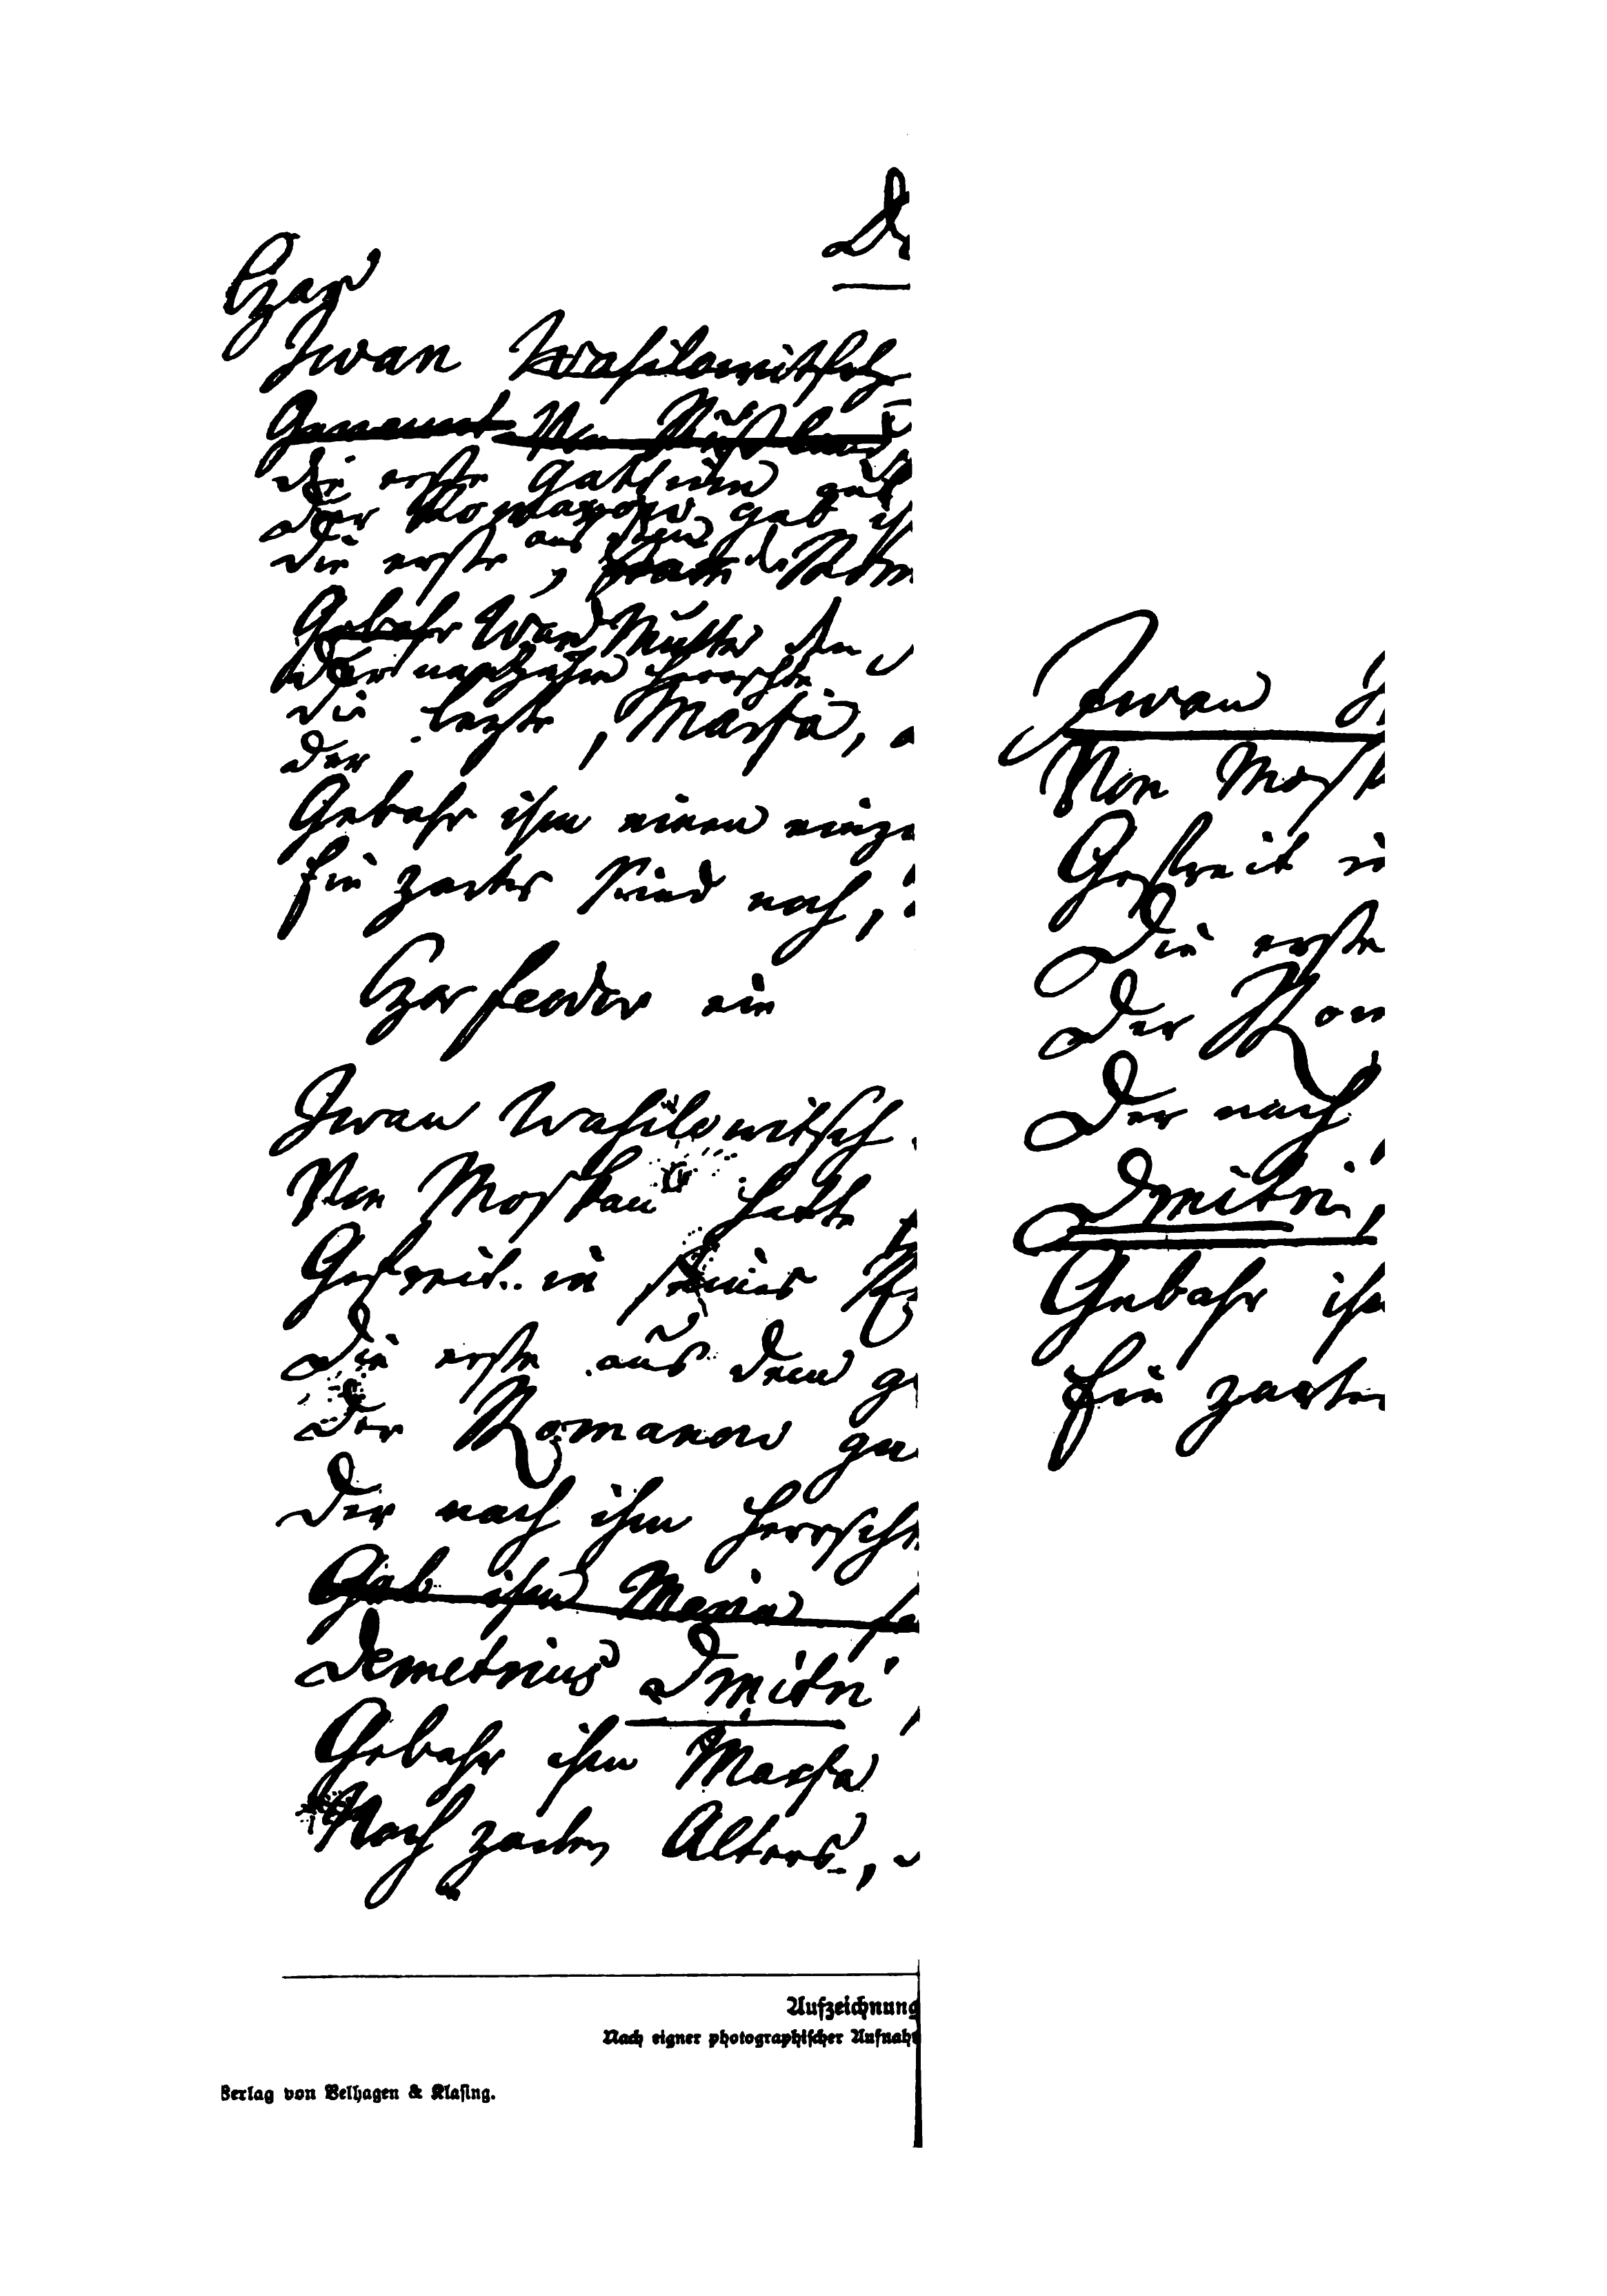 Czar
Iwan Wasilowitsch
Genannt Von Rußland
die erste Gattinn
der Romanow gab
die erste, aus dem Rom
Gebahr Ward Mutter den
der nach ihm herrschte
die lezte, Marfa,
der
Gebahr ihm einen einzi
Ein zartes Kind noch,
Czar Feodor ein
Iwan Wasilowitsch
Von Moskau hatte
Gefreit in seines
Die erste aus dem
Der Romanow
Der nach ihm herrscht
Gab ihm Maria
Demetrius Dmitri
Gebahr ihm Marfa
Noch zarten Alters,
Iwan
Von Mosk
Gefreit in
Die erste
Der Rom
Der nach
Dmitri,
Gebahr ihm
Ein zarter
Aufzeichnung
Nach eigner photographischer Aufnahm
Verlag von Velhagen & Klasing.